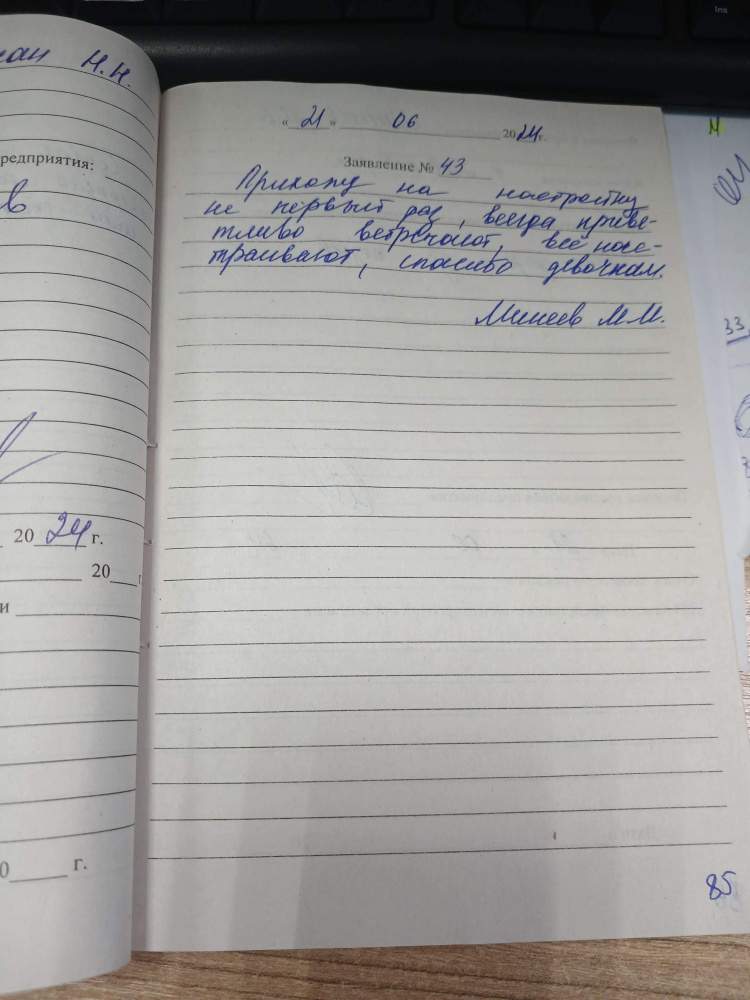 Н.Н.
редприятия:
20 24 г.
20
и
г.
"21" 06 2024г.
Заявление № 43
Прихожу на настройку
не первый раз, всегда приве-
тливо встречают, всё нас-
траивают, спасибо девочкам.
Минеев М.И.
85
33